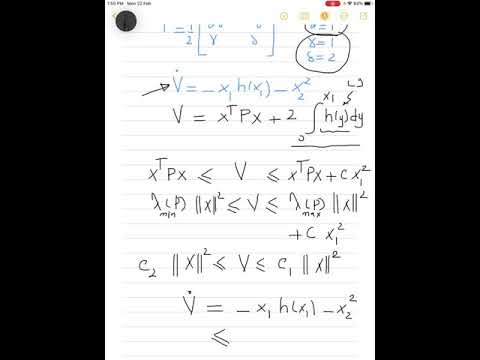 1:50 PM Mon 22 Feb
= 1/2 [
γ δ ]
= 1
γ = 1
δ = 2
V̇ = - x₁ h(x₁) - x₂²
V = xᵀPx + 2 ∫₀^x₁ h(y)dy
xᵀPx ⩽ V ⩽ xᵀPx + c x₁²
λmin(P) ‖x‖² ⩽ V ⩽ λmax(P) ‖x‖²
+ C x₁²
C₂ ‖x‖² ⩽ V ⩽ C₁ ‖x‖²
V̇ = - x₁ h(x₁) - x₂²
⩽